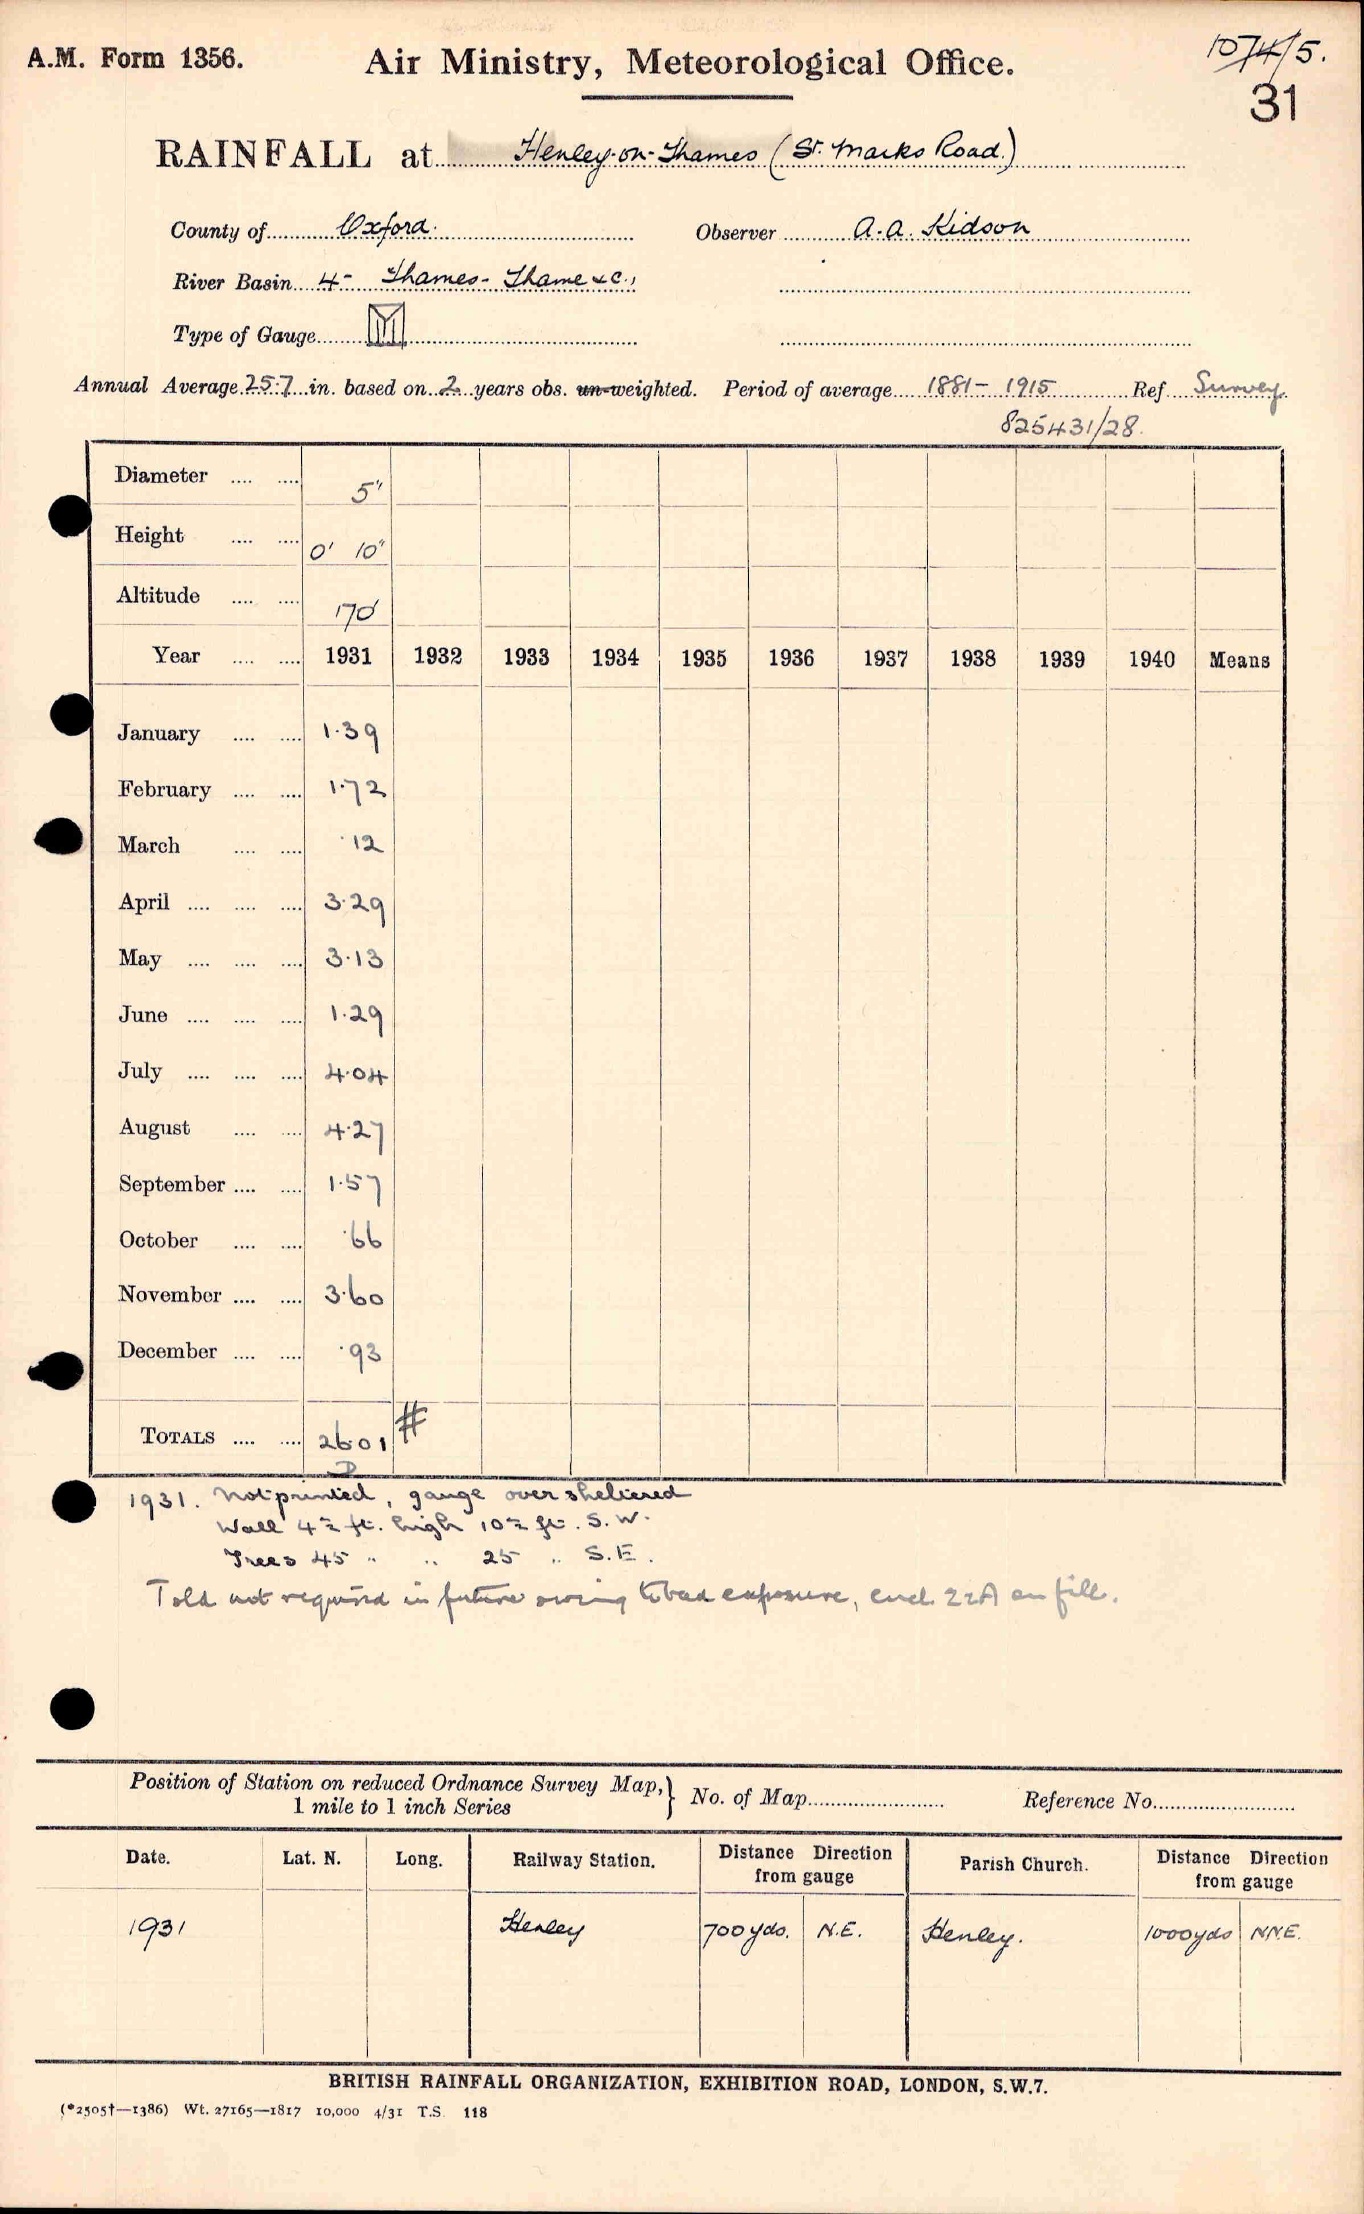 A.M. Form 1356.
Air Ministry, Meteorological Office.
1074/5.
31
RAINFALL at Henley-on-Thames (St. Marks Road.)
County of Oxford.
Observer A.A. Kidson
River Basin 4 - Thames - Thame & C.,
Type of Gauge M
Annual Average 25.7 in. based on 2 years obs. un-weighted. Period of average 1881 - 1915 Ref Survey
825431/28.
Diameter .... .... 5"
Height .... .... 0' 10"
Altitude .... .... 170'
Year .... .... 1931 1932 1933 1934 1935 1936 1937 1938 1939 1940 Means
January .... .... 1.39
February .... .... 1.72
March .... .... .12
April .... .... .... 3.29
May .... .... .... 3.13
June .... .... .... 1.29
July .... .... .... 4.04
August .... .... 4.27
September .... .... 1.57
October .... .... .66
November .... .... 3.60
December .... .... .93
TOTALS .... .... 26.01 #
D
1931. Not printed, gauge over sheltered
Wall 4½ ft. high 10½ ft. S.W.
Trees 45 " " 25 " S.E.
Told not required in future owing to bad exposure, encl. 22A on file.
Position of Station on reduced Ordnance Survey Map, } No. of Map Reference No.
1 mile to 1 inch Series
Date. Lat. N. Long. Railway Station. Distance Direction from gauge Parish Church. Distance Direction from gauge
1931 Henley 700 yds. N.E. Henley. 1000 yds N.N.E.
BRITISH RAINFALL ORGANIZATION, EXHIBITION ROAD, LONDON, S.W.7.
(*2505†—1386) Wt. 27165—1817 10,000 4/31 T.S. 118